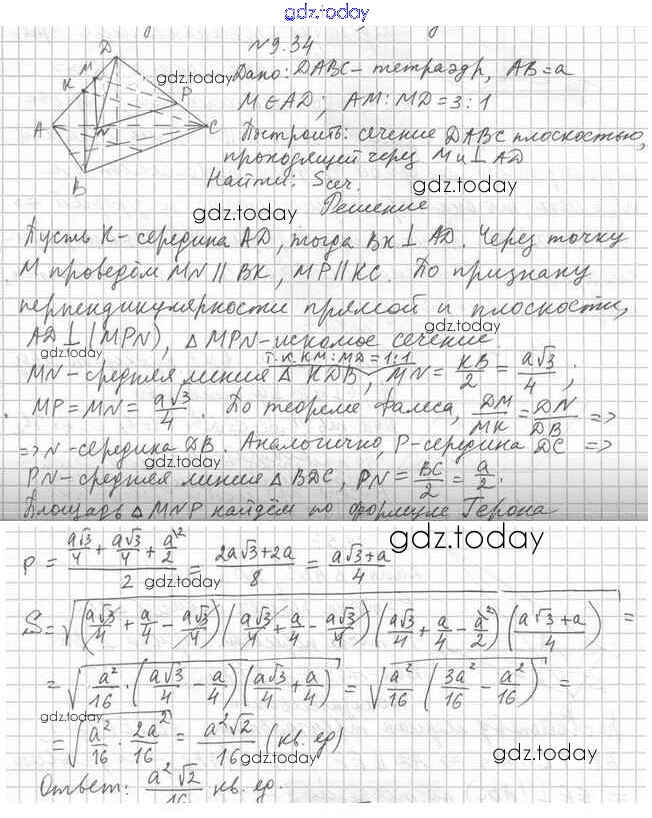 gdz.today
N9.34
D
M
K
A
N
P
C
B
gdz.today
Дано: DABC - тетраэдр, AB = a
M ∈ AD; AM : MD = 3 : 1
Построить: сечение DABC плоскостью,
проходящей через M и ⊥ AD
Найти: Sсеч.
gdz.today
gdz.today
Решение
Пусть K - середина AD, тогда BK ⊥ AD. Через точку
M проведём MN || BK, MP || KC. По признаку
перпендикулярности прямой и плоскости,
AD ⊥ (MPN), Δ MPN - искомое сечение.
gdz.today
gdz.today
т.к. KM : MD = 1:1
MN - средняя линия Δ KDB, MN = KB/2 = a√3/4 ;
MP = MN = a√3/4 . По теореме Фалеса, DM/MK = DN/DB =>
=> N - середина DB. Аналогично, P - середина DC =>
gdz.today
PN - средняя линия Δ BDC, PN = BC/2 = a/2.
Площадь Δ MNP найдём по формуле Герона
gdz.today
p = (a√3/4 + a√3/4 + a/2)/2 = (2a√3 + 2a)/8 = (a√3 + a)/4
gdz.today
S = √((a√3/4 + a/4 - a√3/4)(a√3/4 + a/4 - a√3/4)(a√3/4 + a/4 - a/2)((a√3 + a)/4)) =
= √(a²/16 · (a√3/4 - a/4)(a√3/4 + a/4)) = √(a²/16 (3a²/16 - a²/16)) =
gdz.today
= √(a²/16 · 2a²/16) = a²√2/16 (кв. ед)
gdz.today
gdz.today
Ответ: a²√2/16 кв. ед.